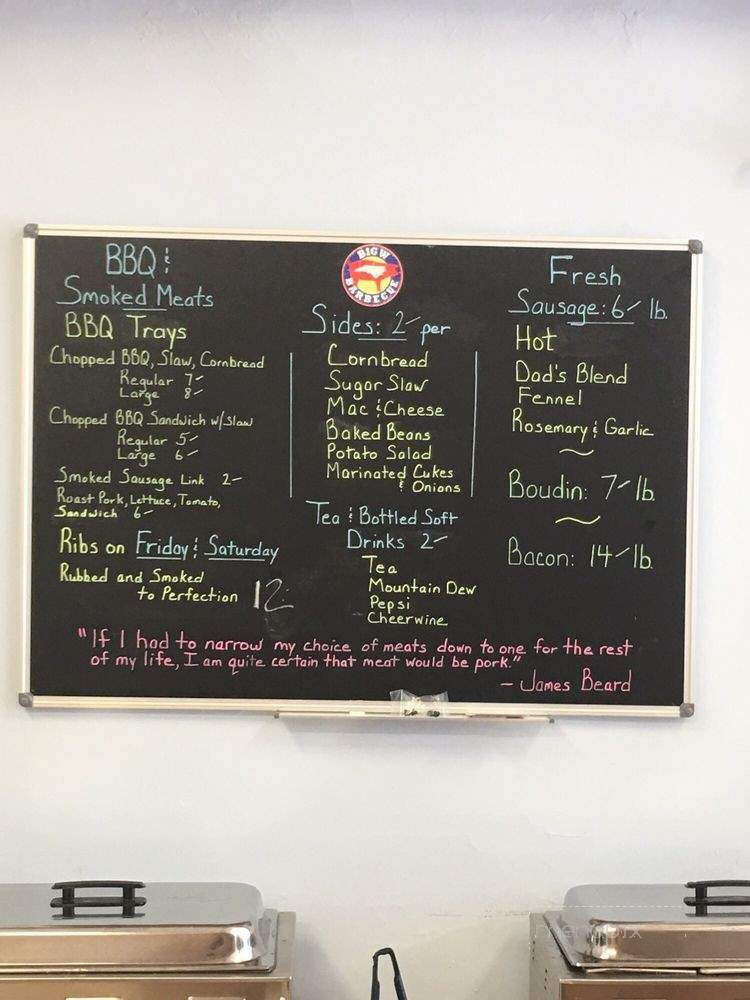 BBQ &
Smoked Meats
BBQ Trays
Chopped BBQ, Slaw, Cornbread
Regular 7-
Large 8-
Chopped BBQ Sandwich w/Slaw
Regular 5-
Large 6-
Smoked Sausage Link 2-
Roast Pork, Lettuce, Tomato,
Sandwich 6-
Ribs on Friday & Saturday
Rubbed and Smoked
to Perfection 12
BIG W
BARBECUE
Sides: 2- per
Cornbread
Sugar Slaw
Mac & Cheese
Baked Beans
Potato Salad
Marinated Cukes
& Onions
Tea & Bottled Soft
Drinks 2-
Tea
Mountain Dew
Pepsi
Cheerwine
Fresh
Sausage: 6- lb.
Hot
Dad's Blend
Fennel
Rosemary & Garlic
Boudin: 7- lb.
Bacon: 14- lb.
"If I had to narrow my choice of meats down to one for the rest
of my life, I am quite certain that meat would be pork."
- James Beard